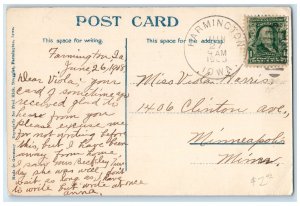 POST CARD
This space for writing.
This space for address only.
FARMINGTON
AM
1908
IOWA
Farmington Ia
June 26 1908
Dear Viola: your
card of sometime ago
received glad to
hear from your
please excuse me
for not writing before
this, but I have been
away from home.
I saw Mrs. Beckley
day she was well. Don't
wait as long as I have
to write but write at once
Anna.
Miss Vista Harris
1406 Clinton ave.,
Minneapolis
Minn.
$2.00